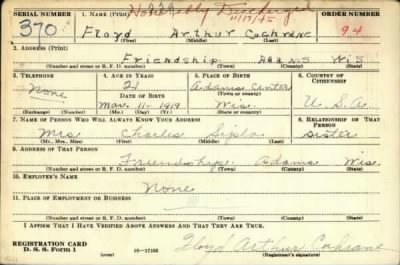 SERIAL NUMBER 1. NAME (Print) Honorably Discharged 11/17/45 ORDER NUMBER
370 Floyd Arthur Cochrane 94
(First) (Middle) (Last)
2. ADDRESS (Print)
Friendship Adams Wis
(Number and street or R. F. D. number) (Town) (County) (State)
3. TELEPHONE 4. AGE IN YEARS 5. PLACE OF BIRTH 6. COUNTRY OF CITIZENSHIP
None 21 Adams Center
DATE OF BIRTH (Town or county)
Mar. 11 - 1919 Wis. U.S.A
(Exchange) (Number) (Mo.) (Day) (Yr.) (State or country)
7. NAME OF PERSON WHO WILL ALWAYS KNOW YOUR ADDRESS 8. RELATIONSHIP OF THAT PERSON
Mrs Charles Sister
(Mr., Mrs., Miss) (First) (Middle) (Last)
9. ADDRESS OF THAT PERSON
Friendship Adams Wis.
(Number and street or R. F. D. number) (Town) (County) (State)
10. EMPLOYER'S NAME
None
11. PLACE OF EMPLOYMENT OR BUSINESS
(Number and street or R. F. D. number) (Town) (County) (State)
I AFFIRM THAT I HAVE VERIFIED ABOVE ANSWERS AND THAT THEY ARE TRUE.
REGISTRATION CARD
D. S. S. Form 1 (over) 16-17105 Floyd Arthur Cochrane